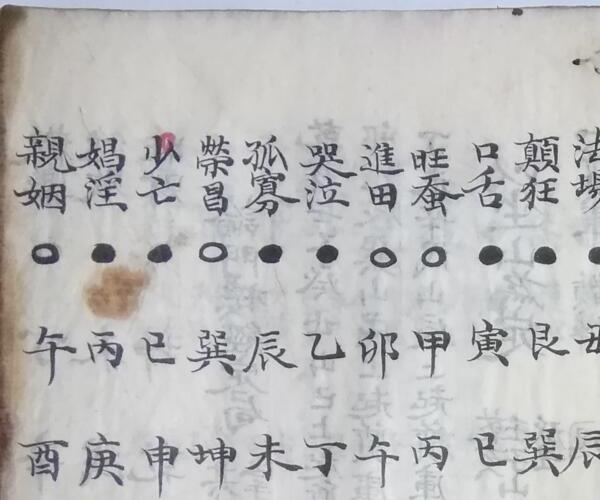 法場●丑辰
顛狂●艮巽
口舌●寅巳
旺蚕○甲丙
進田○卯午
哭泣●乙丁
孤寡●辰未
榮昌○巽坤
少亡●巳申
娼淫●丙庚
親姻○午酉